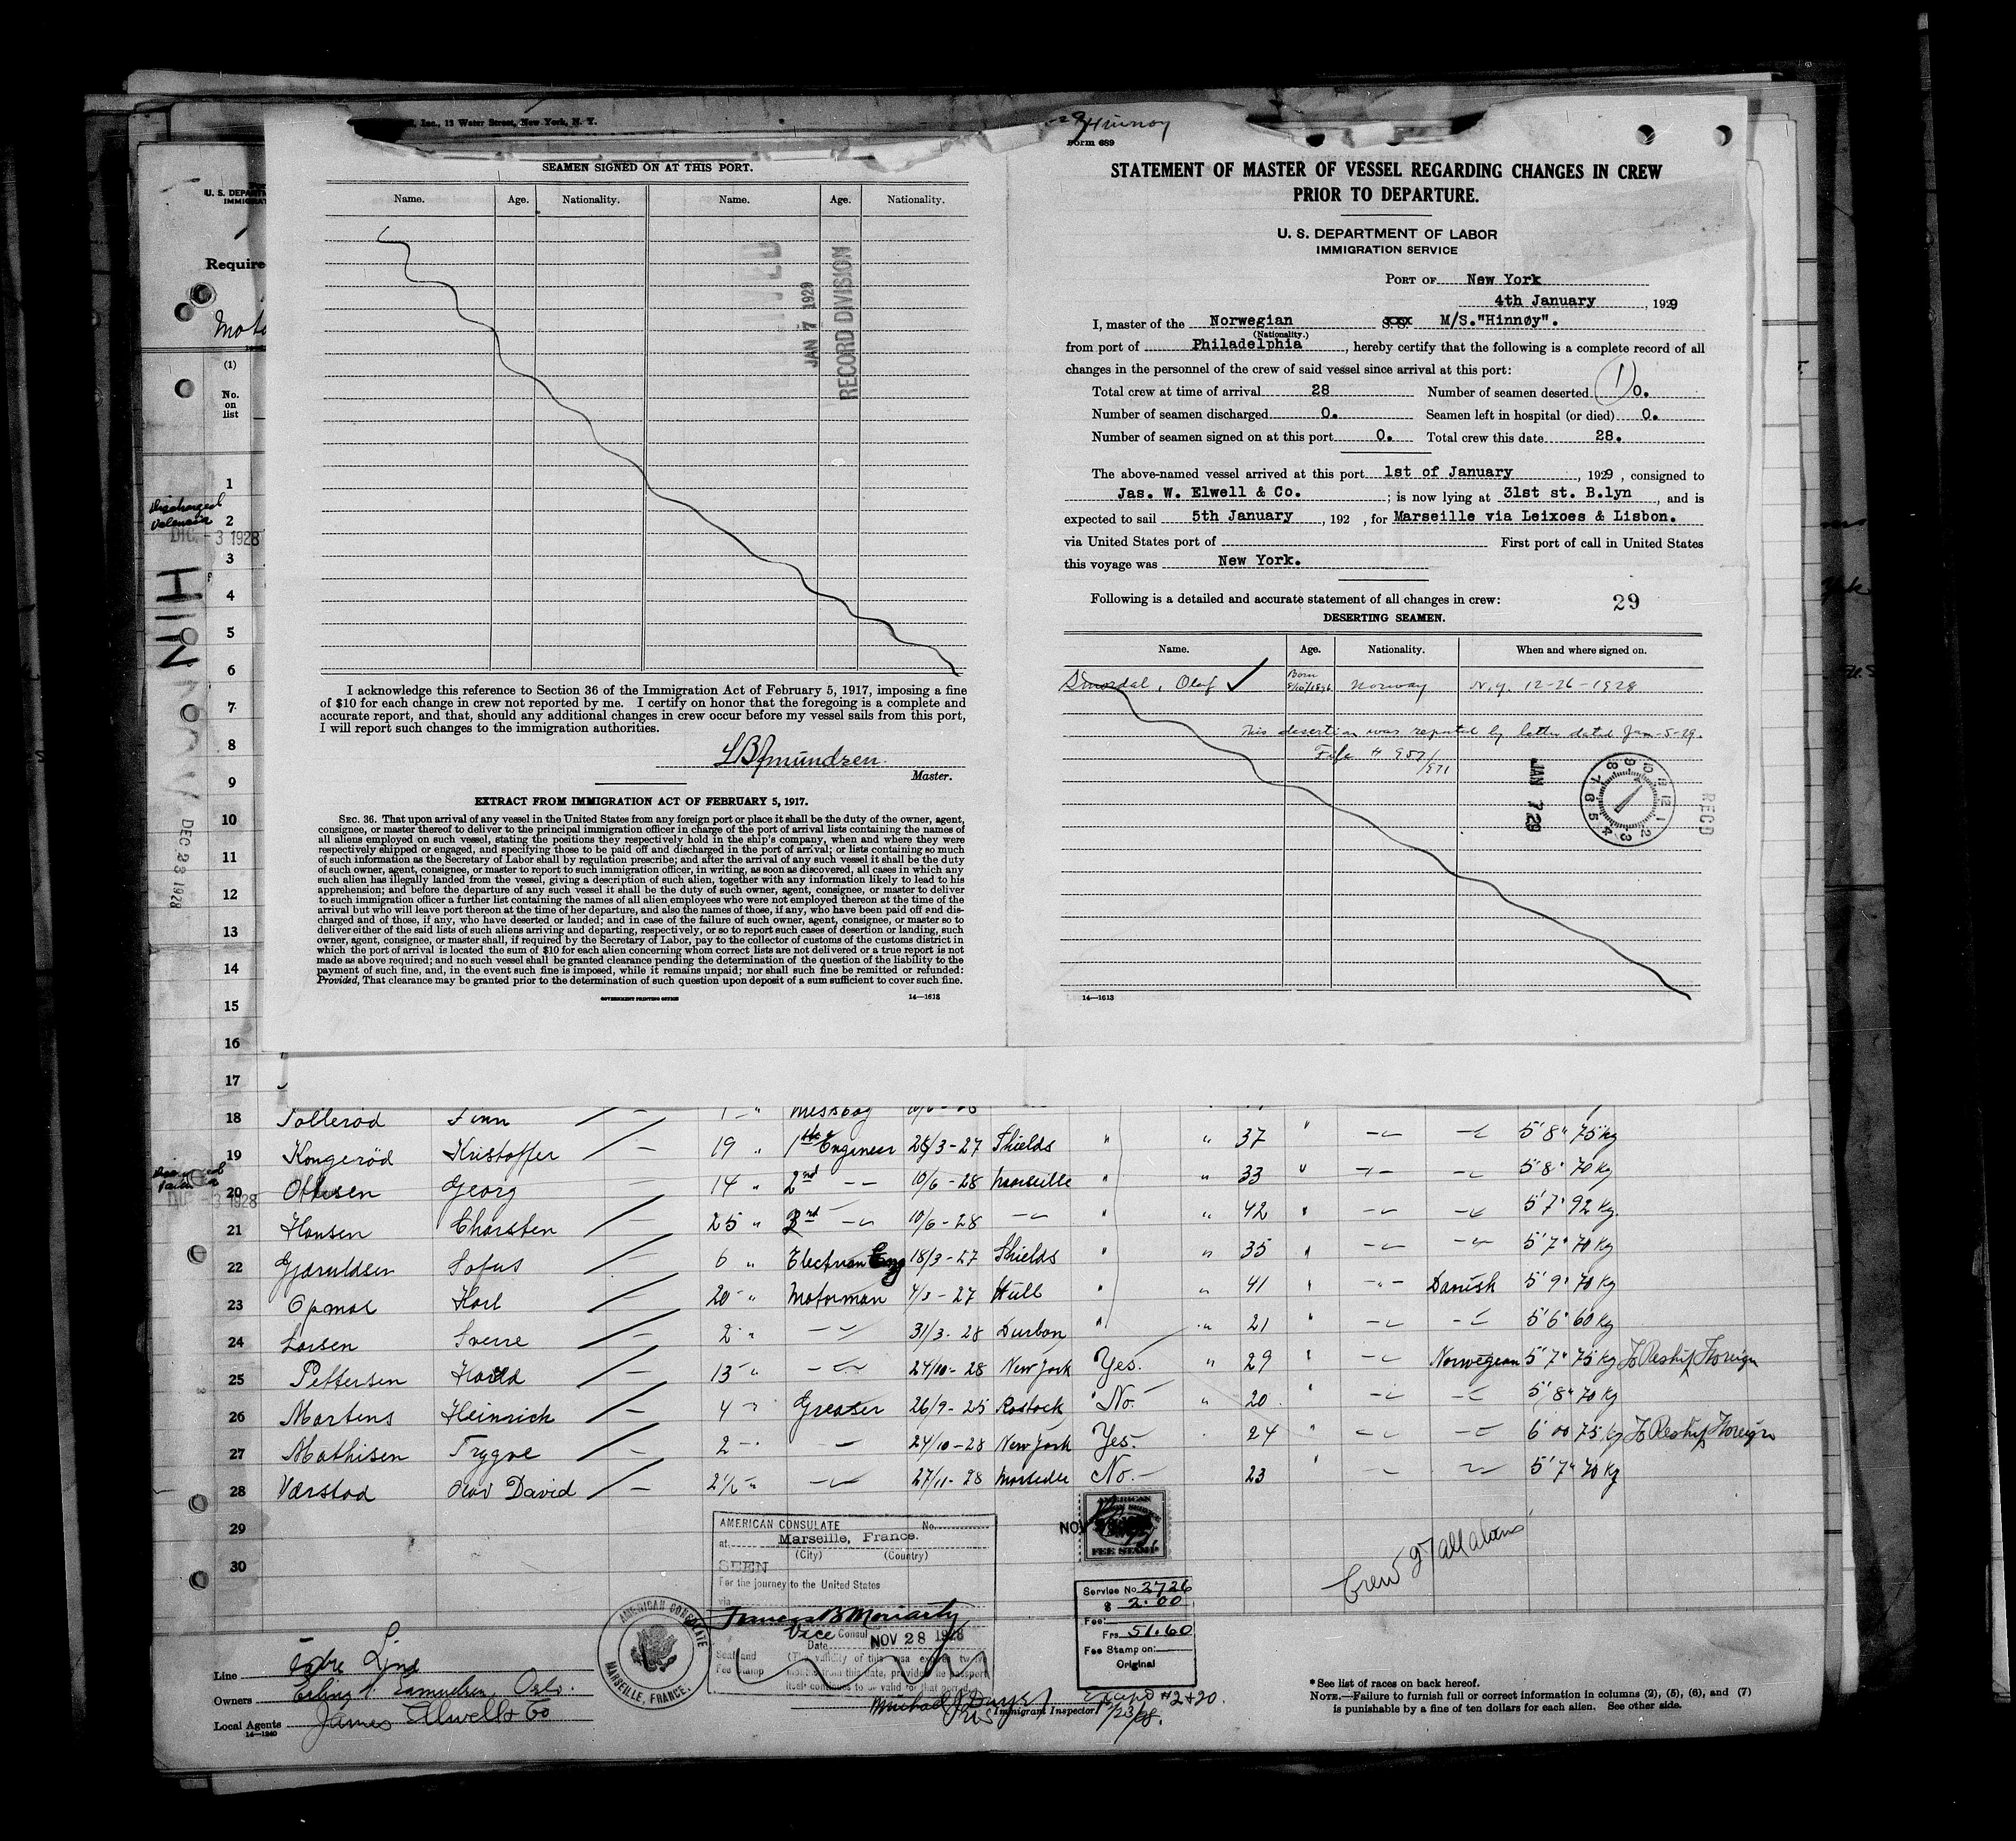 Inc., 13 Water Street, New York, N. Y.
SEAMEN SIGNED ON AT THIS PORT.
Name. Age. Nationality. Name. Age. Nationality.
JAN 7 1929
RECORD DIVISION
I acknowledge this reference to Section 36 of the Immigration Act of February 5, 1917, imposing a fine
of $10 for each change in crew not reported by me. I certify on honor that the foregoing is a complete and
accurate report, and that, should any additional changes in crew occur before my vessel sails from this port,
I will report such changes to the immigration authorities.
Amundsen
Master.
EXTRACT FROM IMMIGRATION ACT OF FEBRUARY 5, 1917.
SEC. 36. That upon arrival of any vessel in the United States from any foreign port or place it shall be the duty of the owner, agent,
consignee, or master thereof to deliver to the principal immigration officer in charge of the port of arrival lists containing the names of
all aliens employed on such vessel, stating the positions they respectively hold in the ship's company, when and where they were
respectively shipped or engaged, and specifying those to be paid off and discharged in the port of arrival; or lists containing so much
of such information as the Secretary of Labor shall by regulation prescribe; and after the arrival of any such vessel it shall be the duty
of such owner, agent, consignee, or master to report to such immigration officer, in writing, as soon as discovered, all cases in which any
such alien has illegally landed from the vessel, giving a description of such alien, together with any information likely to lead to his
apprehension; and before the departure of any such vessel it shall be the duty of such owner, agent, consignee, or master to deliver
to such immigration officer a further list containing the names of all alien employees who were not employed thereon at the time of the
arrival but who will leave port thereon at the time of her departure, and also the names of those, if any, who have been paid off and dis-
charged and of those, if any, who have deserted or landed; and in case of the failure of such owner, agent, consignee, or master so to
deliver either of the said lists of such aliens arriving and departing, respectively, or so to report such cases of desertion or landing, such
owner, agent, consignee, or master shall, if required by the Secretary of Labor, pay to the collector of customs of the customs district in
which the port of arrival is located the sum of $10 for each alien concerning whom correct lists are not delivered or a true report is not
made as above required; and no such vessel shall be granted clearance pending the determination of the question of the liability to the
payment of such fine, and, in the event such fine is imposed, while it remains unpaid; nor shall such fine be remitted or refunded:
Provided, That clearance may be granted prior to the determination of such question upon deposit of a sum sufficient to cover such fine.
GOVERNMENT PRINTING OFFICE 14—1613
Hinnoy
Form 689
STATEMENT OF MASTER OF VESSEL REGARDING CHANGES IN CREW
PRIOR TO DEPARTURE.
U. S. DEPARTMENT OF LABOR
IMMIGRATION SERVICE
PORT OF New York
4th January, 1929
I, master of the Norwegian M/S."Hinnøy".
(Nationality.)
from port of Philadelphia, hereby certify that the following is a complete record of all
changes in the personnel of the crew of said vessel since arrival at this port:
Total crew at time of arrival 28 Number of seamen deserted 1 0.
Number of seamen discharged 0. Seamen left in hospital (or died) 0.
Number of seamen signed on at this port 0. Total crew this date 28.
The above-named vessel arrived at this port 1st of January, 1929, consigned to
Jas. W. Elwell & Co.; is now lying at 31st st. B.lyn, and is
expected to sail 5th January, 192 , for Marseille via Leixoes & Lisbon.
via United States port of First port of call in United States
this voyage was New York.
Following is a detailed and accurate statement of all changes in crew: 29
DESERTING SEAMEN.
Name. Age. Nationality. When and where signed on.
Olaf ✓ Born Norway N.Y. 12-26-1928
This desertion was reported by letter dated Jan-5-29.
File # 957/
JAN 7 29
RECD
14—1613
U. S. DEPART
IMMIGRA
Require
Moto
(1)
No.
on
list
1
Discharged
Valencia
2
DIC. -3 1928
3
HINNOY
4
5
6
7
8
9
10
DEC 23 1928
11
12
13
14
15
16
17
18 Tollerød Finn Messboy
19 Kongerød Kristoffer 19 " 1ste Engineer 28/3-27 Shields " " 37 " 5' 8" 75 kg
20 Ottesen Georg 14 " 2nd 10/6-28 Marseille " " 33 " 5' 8" 70 kg
DIC -3 1928
21 Hansen Thorsten 25 " 3rd 10/6-28 " " 42 " 5' 7" 92 kg.
22 Gjæruldsen Sofus 6 " Electrian Eng 18/3-27 Shields " " 35 " 5' 7" 70 kg
23 Karl 20 " Motorman 4/3-27 Hull " " 41 " Danish 5' 9" 70 kg
24 Larsen Sverre 2 " 31/3-28 Durban " " 21 " 5' 6" 60 kg
25 Pettersen Harald 13 " 24/10-28 New York Yes. " 29 " Norwegean 5' 7" 75 kg To Reship Foreign
26 Martens Heinrich 4 " Greaser 26/9-25 Rostock No. " 20 " 5' 8" 70 kg
27 Mathisen Trygve 2 " 24/10-28 New York Yes. 24 " 6' 00 75 kg To Reship Foreign
28 Værstad Olav David 2½ " 27/11-28 Marseille No. 23 " 5' 7" 70 kg
29
30
AMERICAN CONSULATE No.
at Marseille, France.
(City) (Country)
SEEN
For the journey to the United States
via
Francis B Moriarty
Vice Consul
Date NOV 28 1928
Seal and
Fee Stamp
(The validity of this visa expires twelve
months from this date, provided the passport
itself continues to be valid for that period.)
AMERICAN CONSULATE
MARSEILLE, FRANCE.
NOV
AMERICAN
FEE STAMP
Service No. 2726
$ 2.00
Fee:
Frs 51.60
Fee Stamp on:
Original
Crew 27 all aliens
Line Fabre Line
Owners Erling Samuelsen, Oslo.
Local Agents James Elwell & Co
14—1240
Immigrant Inspector
12/23/28.
*See list of races on back hereof.
NOTE.—Failure to furnish full or correct information in columns (2), (5), (6), and (7)
is punishable by a fine of ten dollars for each alien. See other side.